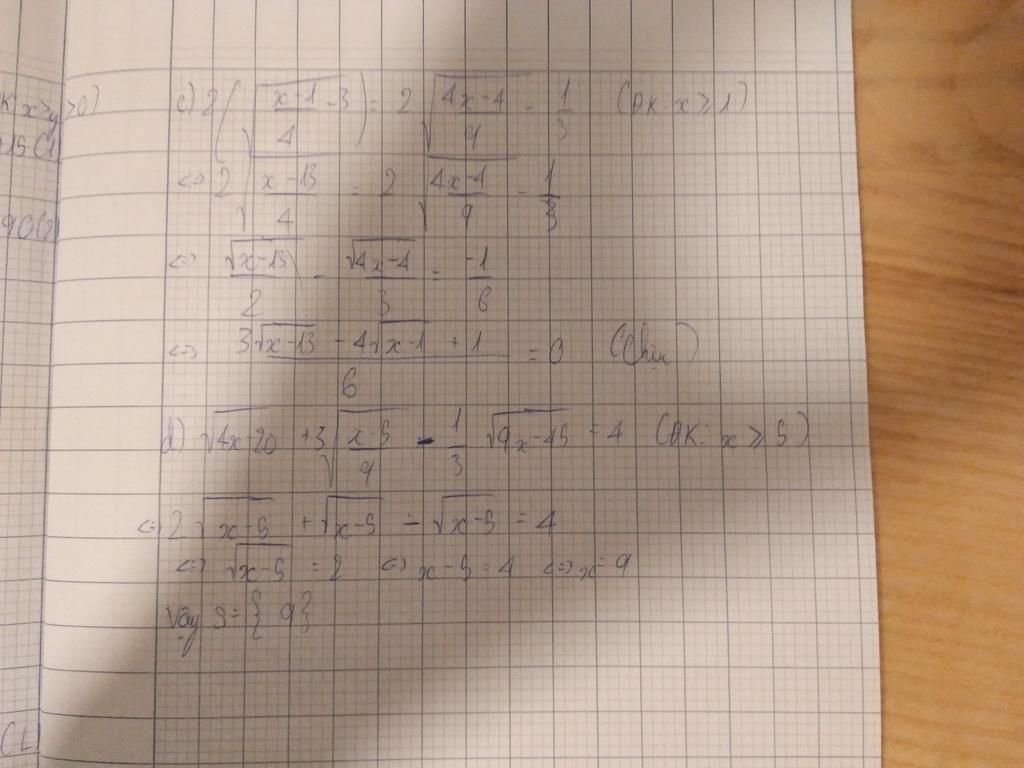 K: x > y > 0)
c) 2(√((x-1)/4) - 3) = 2√((4x-4)/9) - 1/3 (ĐK: x ≥ 1)
⇔ 2√((x-13)/4) = 2√((4x-4)/9) - 1/3
⇔ √(x-13)/2 - √(4x-4)/3 = -1/6
⇔ (3√(x-13) - 4√(x-1) + 1)/6 = 0
d) √(4x-20) + 3√((x-5)/9) - 1/3 √(9x-45) = 4 (ĐK: x ≥ 5)
⇔ 2√(x-5) + √(x-5) - √(x-5) = 4
⇔ √(x-5) = 2 ⇔ x - 5 = 4 ⇔ x = 9
Vậy S = { 9 }